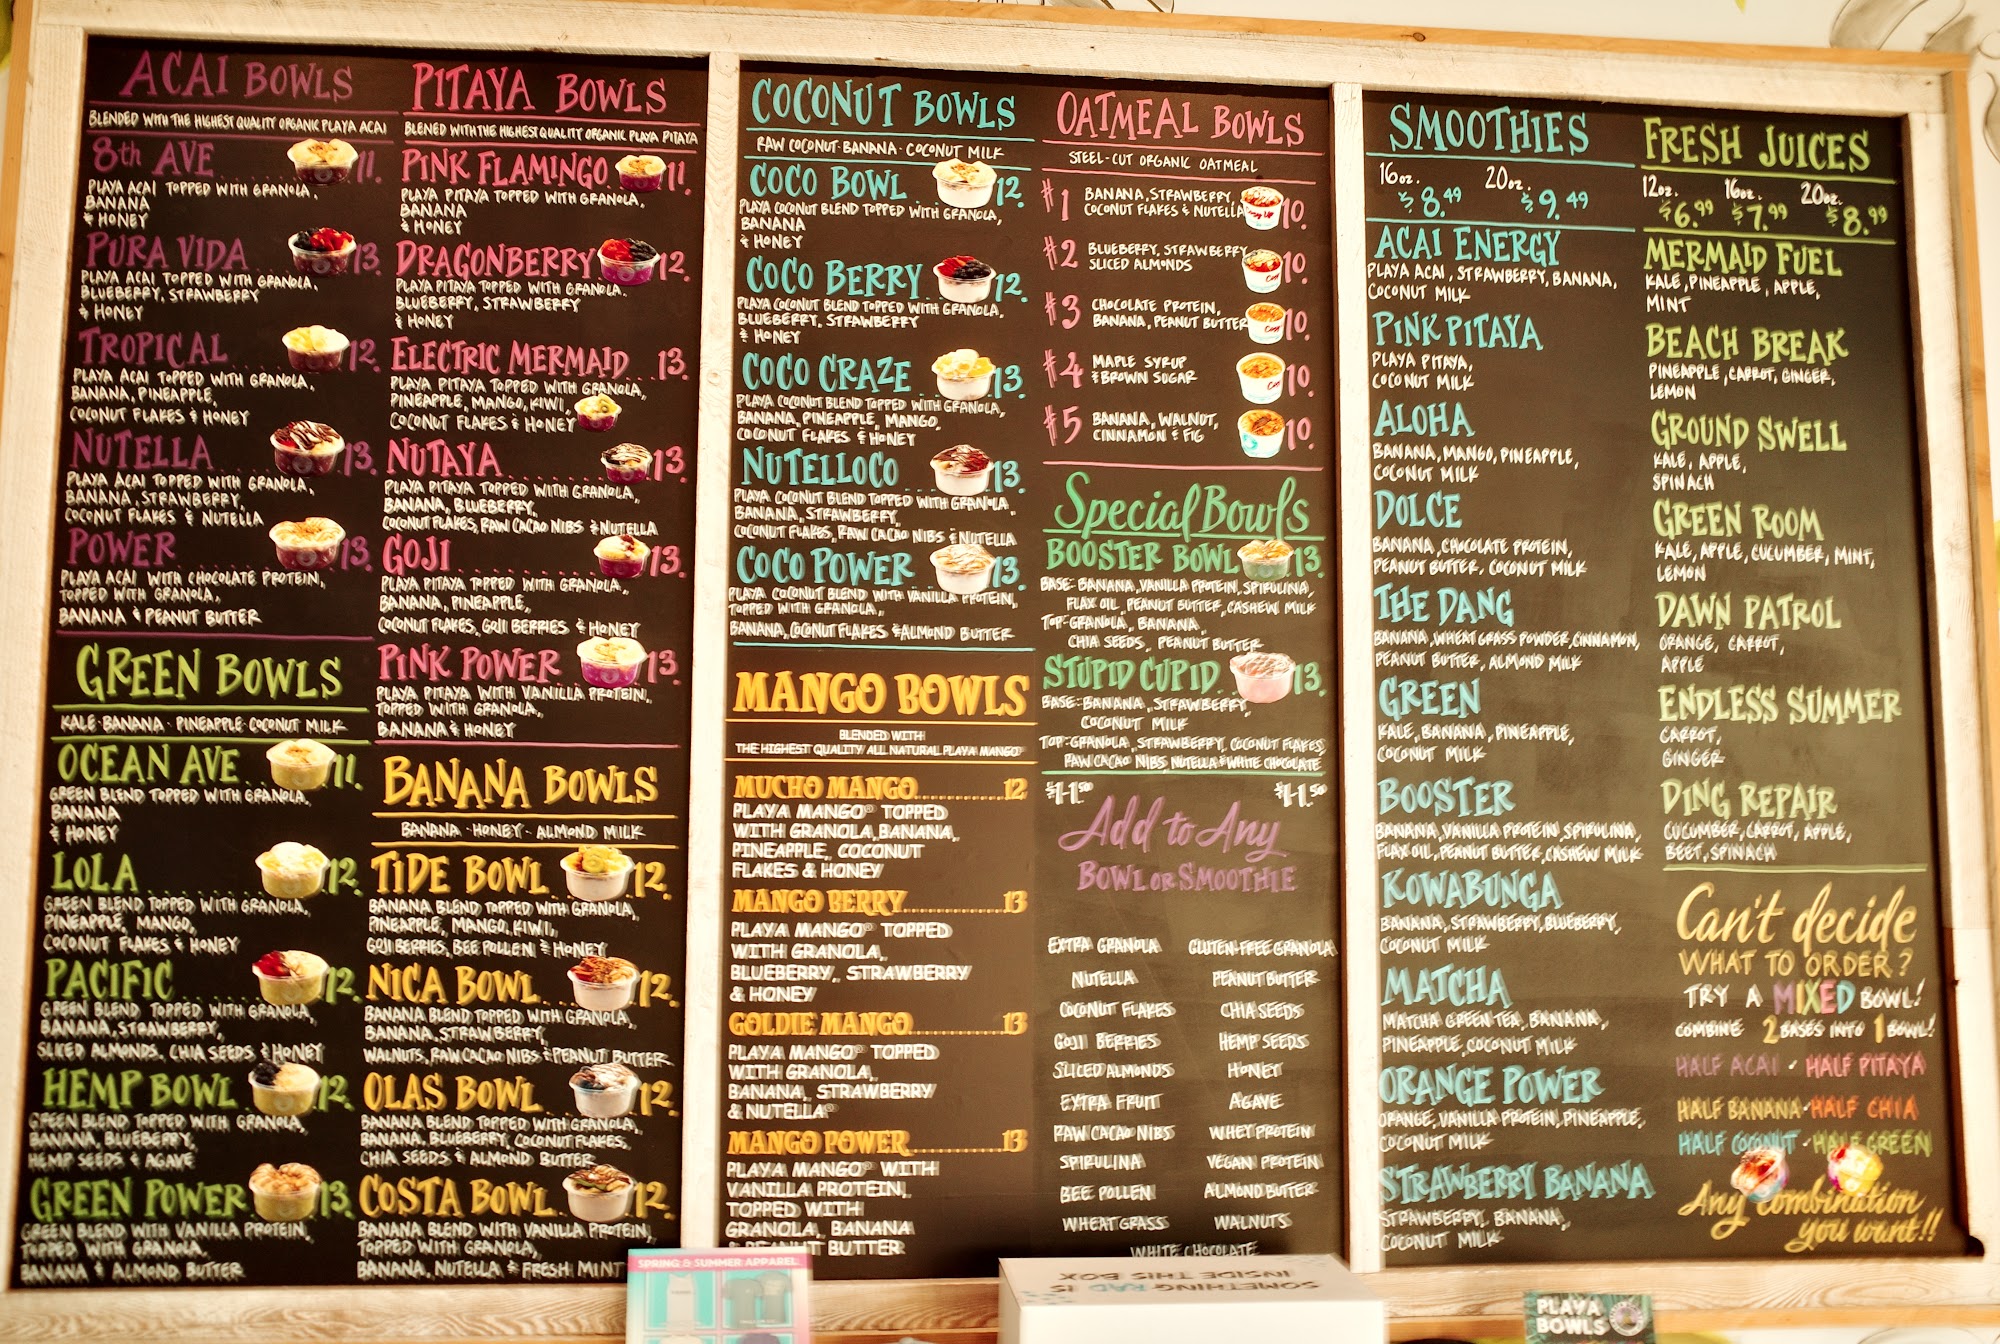 ACAI BOWLS
BLENDED WITH THE HIGHEST QUALITY ORGANIC PLAYA ACAI
8th AVE 11.
PLAYA ACAI TOPPED WITH GRANOLA,
BANANA
& HONEY
PURA VIDA 13.
PLAYA ACAI TOPPED WITH GRANOLA,
BLUEBERRY, STRAWBERRY
& HONEY
TROPICAL 12.
PLAYA ACAI TOPPED WITH GRANOLA,
BANANA, PINEAPPLE,
COCONUT FLAKES & HONEY
NUTELLA 13.
PLAYA ACAI TOPPED WITH GRANOLA,
BANANA, STRAWBERRY,
COCONUT FLAKES & NUTELLA
POWER 13.
PLAYA ACAI WITH CHOCOLATE PROTEIN,
TOPPED WITH GRANOLA,
BANANA & PEANUT BUTTER
GREEN BOWLS
KALE · BANANA · PINEAPPLE · COCONUT MILK
OCEAN AVE 11.
GREEN BLEND TOPPED WITH GRANOLA,
BANANA
& HONEY
LOLA 12.
GREEN BLEND TOPPED WITH GRANOLA,
PINEAPPLE, MANGO,
COCONUT FLAKES & HONEY
PACIFIC 12.
GREEN BLEND TOPPED WITH GRANOLA,
BANANA, STRAWBERRY,
SLICED ALMONDS, CHIA SEEDS & HONEY
HEMP BOWL 12.
GREEN BLEND TOPPED WITH GRANOLA,
BANANA, BLUEBERRY,
HEMP SEEDS & AGAVE
GREEN POWER 13.
GREEN BLEND WITH VANILLA PROTEIN,
TOPPED WITH GRANOLA,
BANANA & ALMOND BUTTER
PITAYA BOWLS
BLENED WITH THE HIGHEST QUALITY ORGANIC PLAYA PITAYA
PINK FLAMINGO 11.
PLAYA PITAYA TOPPED WITH GRANOLA,
BANANA
& HONEY
DRAGONBERRY 12.
PLAYA PITAYA TOPPED WITH GRANOLA,
BLUEBERRY, STRAWBERRY
& HONEY
ELECTRIC MERMAID 13.
PLAYA PITAYA TOPPED WITH GRANOLA,
PINEAPPLE, MANGO, KIWI,
COCONUT FLAKES & HONEY
NUTAYA 13.
PLAYA PITAYA TOPPED WITH GRANOLA,
BANANA, BLUEBERRY,
COCONUT FLAKES, RAW CACAO NIBS & NUTELLA
GOJI 13.
PLAYA PITAYA TOPPED WITH GRANOLA,
BANANA, PINEAPPLE,
COCONUT FLAKES, GOJI BERRIES & HONEY
PINK POWER 13.
PLAYA PITAYA WITH VANILLA PROTEIN,
TOPPED WITH GRANOLA,
BANANA & HONEY
BANANA BOWLS
BANANA · HONEY · ALMOND MILK
TIDE BOWL 12.
BANANA BLEND TOPPED WITH GRANOLA,
PINEAPPLE, MANGO, KIWI,
GOJI BERRIES, BEE POLLEN & HONEY
NICA BOWL 12.
BANANA BLEND TOPPED WITH GRANOLA,
BANANA, STRAWBERRY,
WALNUTS, RAW CACAO NIBS & PEANUT BUTTER
OLAS BOWL 12.
BANANA BLEND TOPPED WITH GRANOLA,
BANANA, BLUEBERRY, COCONUT FLAKES,
CHIA SEEDS & ALMOND BUTTER
COSTA BOWL 12.
BANANA BLEND WITH VANILLA PROTEIN,
TOPPED WITH GRANOLA,
BANANA, NUTELLA & FRESH MINT
COCONUT BOWLS
RAW COCONUT · BANANA · COCONUT MILK
COCO BOWL 12.
PLAYA COCONUT BLEND TOPPED WITH GRANOLA,
BANANA
& HONEY
COCO BERRY 12.
PLAYA COCONUT BLEND TOPPED WITH GRANOLA,
BLUEBERRY, STRAWBERRY
& HONEY
COCO CRAZE 13.
PLAYA COCONUT BLEND TOPPED WITH GRANOLA,
BANANA, PINEAPPLE, MANGO,
COCONUT FLAKES & HONEY
NUTELLOCO 13.
PLAYA COCONUT BLEND TOPPED WITH GRANOLA,
BANANA, STRAWBERRY,
COCONUT FLAKES, RAW CACAO NIBS & NUTELLA
COCO POWER 13.
PLAYA COCONUT BLEND WITH VANILLA PROTEIN,
TOPPED WITH GRANOLA,
BANANA, COCONUT FLAKES & ALMOND BUTTER
MANGO BOWLS
BLENDED WITH
THE HIGHEST QUALITY ALL NATURAL PLAYA MANGO
MUCHO MANGO 12
PLAYA MANGO® TOPPED
WITH GRANOLA, BANANA,
PINEAPPLE, COCONUT
FLAKES & HONEY
MANGO BERRY 13
PLAYA MANGO® TOPPED
WITH GRANOLA,
BLUEBERRY, STRAWBERRY
& HONEY
GOLDIE MANGO 13
PLAYA MANGO® TOPPED
WITH GRANOLA,
BANANA, STRAWBERRY
& NUTELLA®
MANGO POWER 13
PLAYA MANGO® WITH
VANILLA PROTEIN,
TOPPED WITH
GRANOLA, BANANA
& PEANUT BUTTER
OATMEAL BOWLS
STEEL-CUT ORGANIC OATMEAL
#1 BANANA, STRAWBERRY, 10.
COCONUT FLAKES & NUTELLA
#2 BLUEBERRY, STRAWBERRY 10.
SLICED ALMONDS
#3 CHOCOLATE PROTEIN, 10.
BANANA, PEANUT BUTTER
#4 MAPLE SYRUP 10.
& BROWN SUGAR
#5 BANANA, WALNUT, 10.
CINNAMON & FIG
Special Bowls
BOOSTER BOWL 13.
BASE: BANANA, VANILLA PROTEIN, SPIRULINA,
FLAX OIL, PEANUT BUTTER, CASHEW MILK
TOP: GRANOLA, BANANA,
CHIA SEEDS, PEANUT BUTTER
STUPID CUPID 13.
BASE: BANANA, STRAWBERRY,
COCONUT MILK
TOP: GRANOLA, STRAWBERRY, COCONUT FLAKES,
RAW CACAO NIBS, NUTELLA & WHITE CHOCOLATE
$1-1.50 $1-1.50
Add to Any
BOWL OR SMOOTHIE
EXTRA GRANOLA GLUTEN-FREE GRANOLA
NUTELLA PEANUT BUTTER
COCONUT FLAKES CHIA SEEDS
GOJI BERRIES HEMP SEEDS
SLICED ALMONDS HONEY
EXTRA FRUIT AGAVE
RAW CACAO NIBS WHEY PROTEIN
SPIRULINA VEGAN PROTEIN
BEE POLLEN ALMOND BUTTER
WHEATGRASS WALNUTS
WHITE CHOCOLATE
SMOOTHIES
16oz. 20oz.
$8.49 $9.49
ACAI ENERGY
PLAYA ACAI, STRAWBERRY, BANANA,
COCONUT MILK
PINK PITAYA
PLAYA PITAYA,
COCONUT MILK
ALOHA
BANANA, MANGO, PINEAPPLE,
COCONUT MILK
DOLCE
BANANA, CHOCOLATE PROTEIN,
PEANUT BUTTER, COCONUT MILK
THE DANG
BANANA, WHEATGRASS POWDER, CINNAMON,
PEANUT BUTTER, ALMOND MILK
GREEN
KALE, BANANA, PINEAPPLE,
COCONUT MILK
BOOSTER
BANANA, VANILLA PROTEIN, SPIRULINA,
FLAX OIL, PEANUT BUTTER, CASHEW MILK
KOWABUNGA
BANANA, STRAWBERRY, BLUEBERRY,
COCONUT MILK
MATCHA
MATCHA GREEN TEA, BANANA,
PINEAPPLE, COCONUT MILK
ORANGE POWER
ORANGE, VANILLA PROTEIN, PINEAPPLE,
COCONUT MILK
STRAWBERRY BANANA
STRAWBERRY, BANANA,
COCONUT MILK
FRESH JUICES
12oz. 16oz. 20oz.
$6.99 $7.99 $8.99
MERMAID FUEL
KALE, PINEAPPLE, APPLE,
MINT
BEACH BREAK
PINEAPPLE, CARROT, GINGER,
LEMON
GROUND SWELL
KALE, APPLE,
SPINACH
GREEN ROOM
KALE, APPLE, CUCUMBER, MINT,
LEMON
DAWN PATROL
ORANGE, CARROT,
APPLE
ENDLESS SUMMER
CARROT,
GINGER
DING REPAIR
CUCUMBER, CARROT, APPLE,
BEET, SPINACH
Can't decide
WHAT TO ORDER?
TRY A MIXED BOWL!
COMBINE 2 BASES INTO 1 BOWL!
HALF ACAI · HALF PITAYA
HALF BANANA · HALF CHIA
HALF COCONUT · HALF GREEN
Any combination
you want!!
SPRING & SUMMER APPAREL
SOMETHING RAD IS
INSIDE THIS BOX
PLAYA
BOWLS